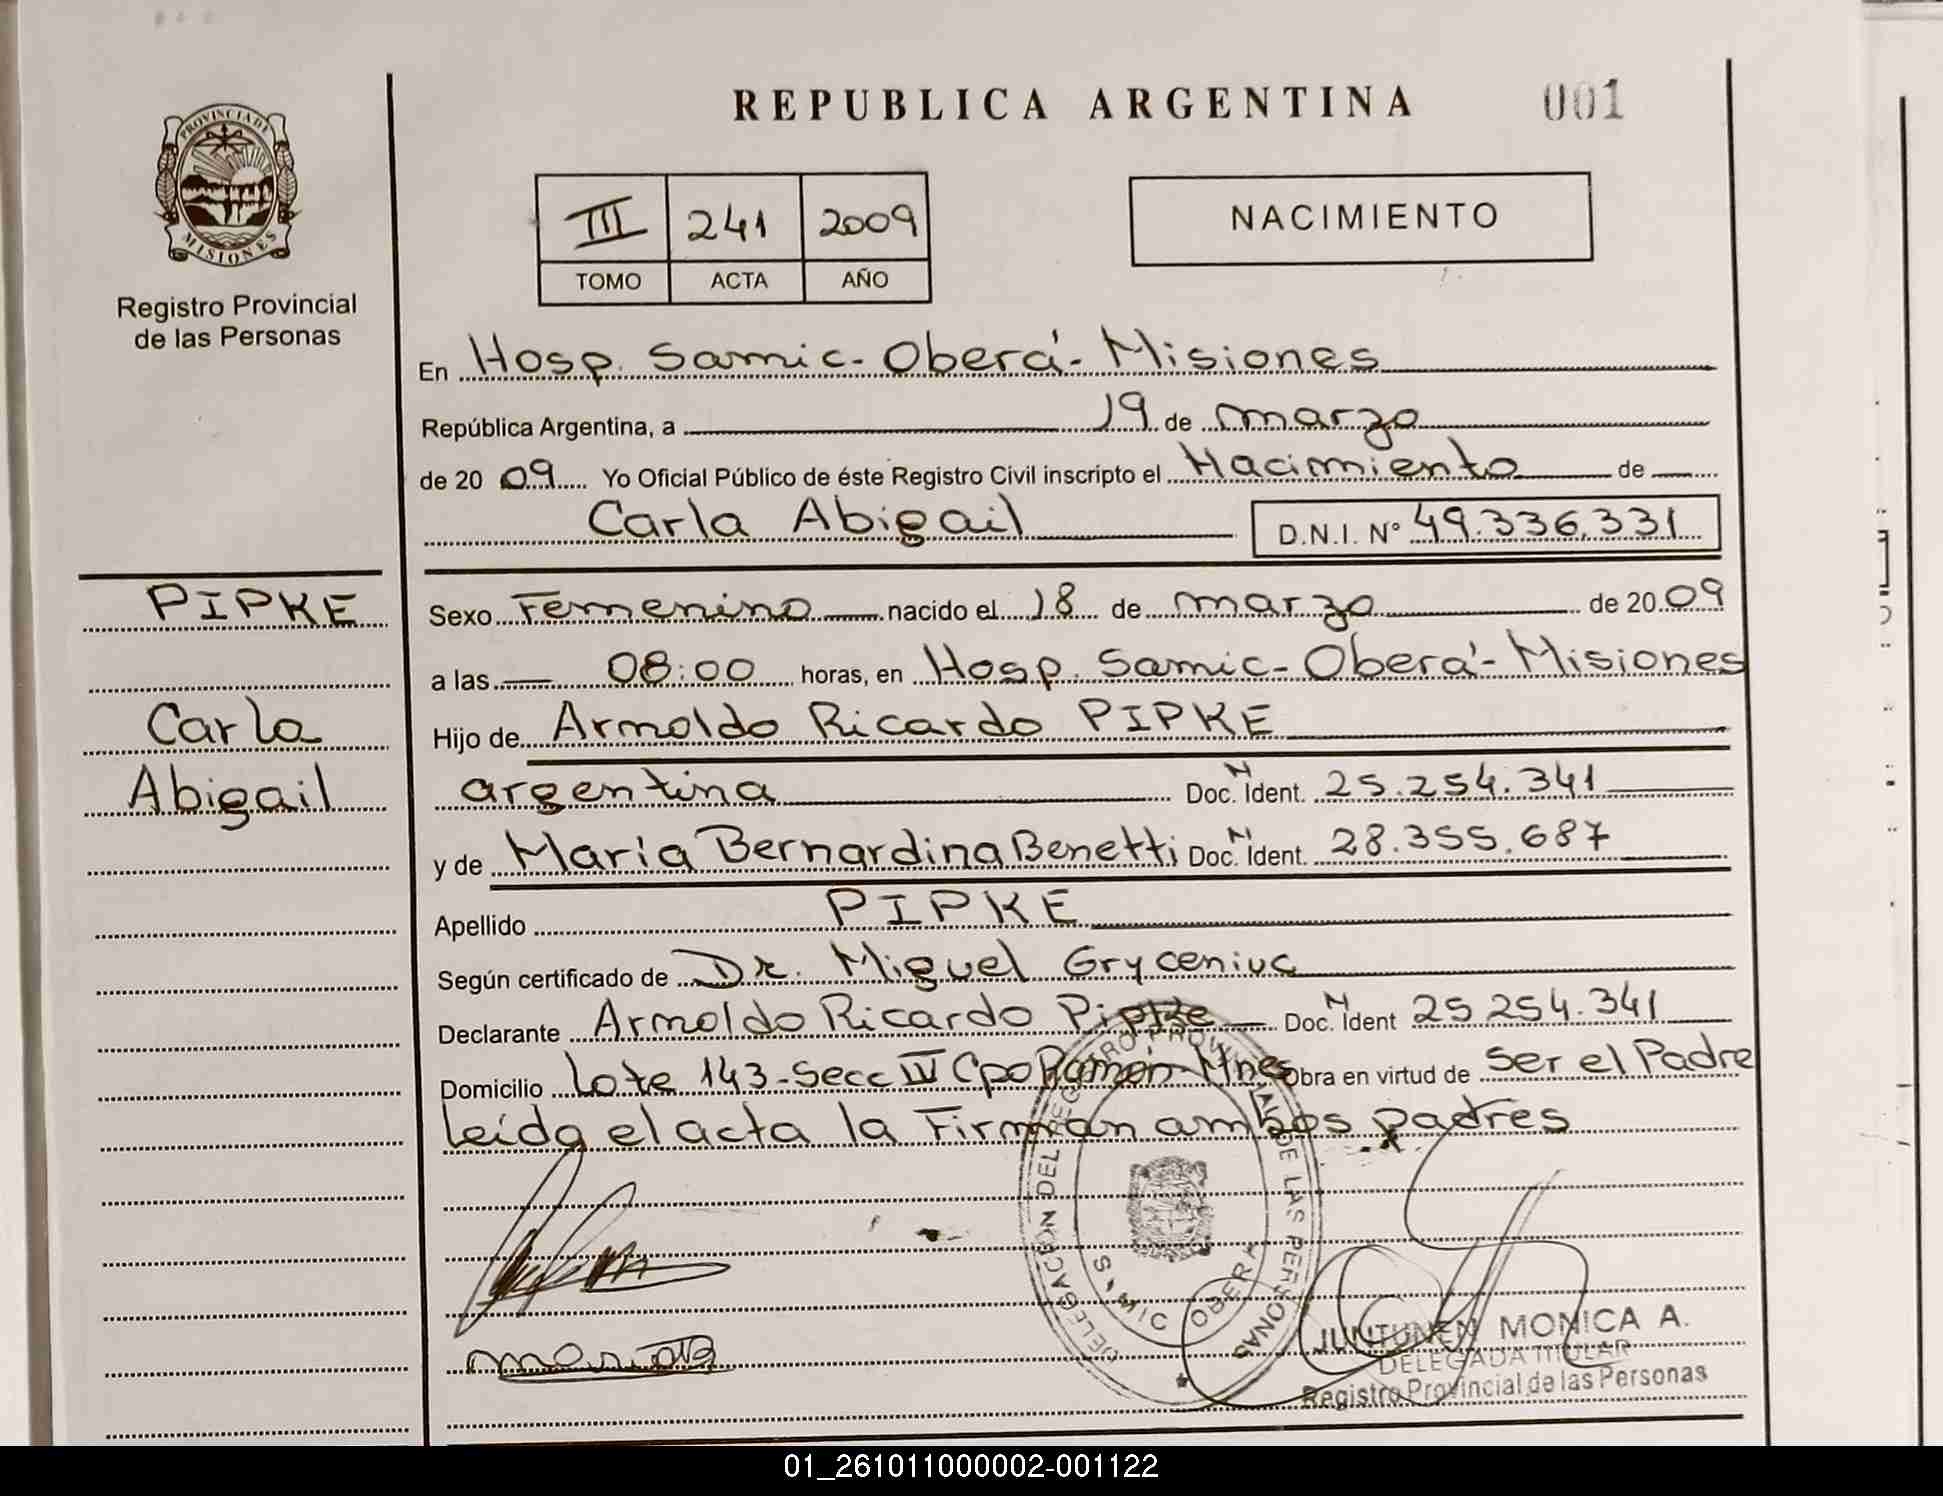 REPUBLICA ARGENTINA 001
PROVINCIA DE
MISIONES
Registro Provincial
de las Personas
III 241 2009
TOMO ACTA AÑO
NACIMIENTO
En Hosp. Samic - Oberá - Misiones
República Argentina, a 19 de marzo
de 2009 Yo Oficial Público de éste Registro Civil inscripto el Nacimiento de
Carla Abigail D.N.I. N° 49.336.331
PIPKE
Carla
Abigail
Sexo Femenino nacido el 18 de marzo de 2009
a las 08:00 horas, en Hosp. Samic - Oberá - Misiones
Hijo de Arnoldo Ricardo PIPKE
argentina Doc. N Ident. 25.254.341
y de María Bernardina Benetti Doc. N Ident. 28.355.687
Apellido PIPKE
Según certificado de Dr. Miguel Gryceniuc
Declarante Arnoldo Ricardo Pipke Doc. N Ident 25 254.341
Domicilio Lote 143 - Secc IV Cpo Ramón - Mnes Obra en virtud de Ser el Padre
Leída el acta la Firman ambos padres
DELEGACION DEL REGISTRO PROVINCIAL DE LAS PERSONAS
OBERA
JUNTUNEN MONICA A.
DELEGADA TITULAR
Registro Provincial de las Personas
01_261011000002-001122